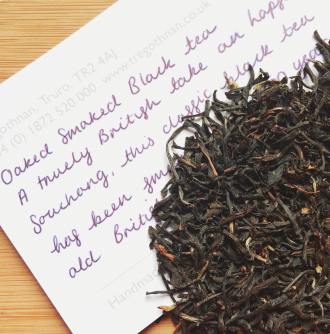 gothnan, Truro, TR2 4AJ
4 (0) 1872 520 000 www.tregothnan.co.uk
Oaked Smoked Black tea
A truely British take on Lap
Souchong, this classic black tea
has been sm
old Briti
Handma